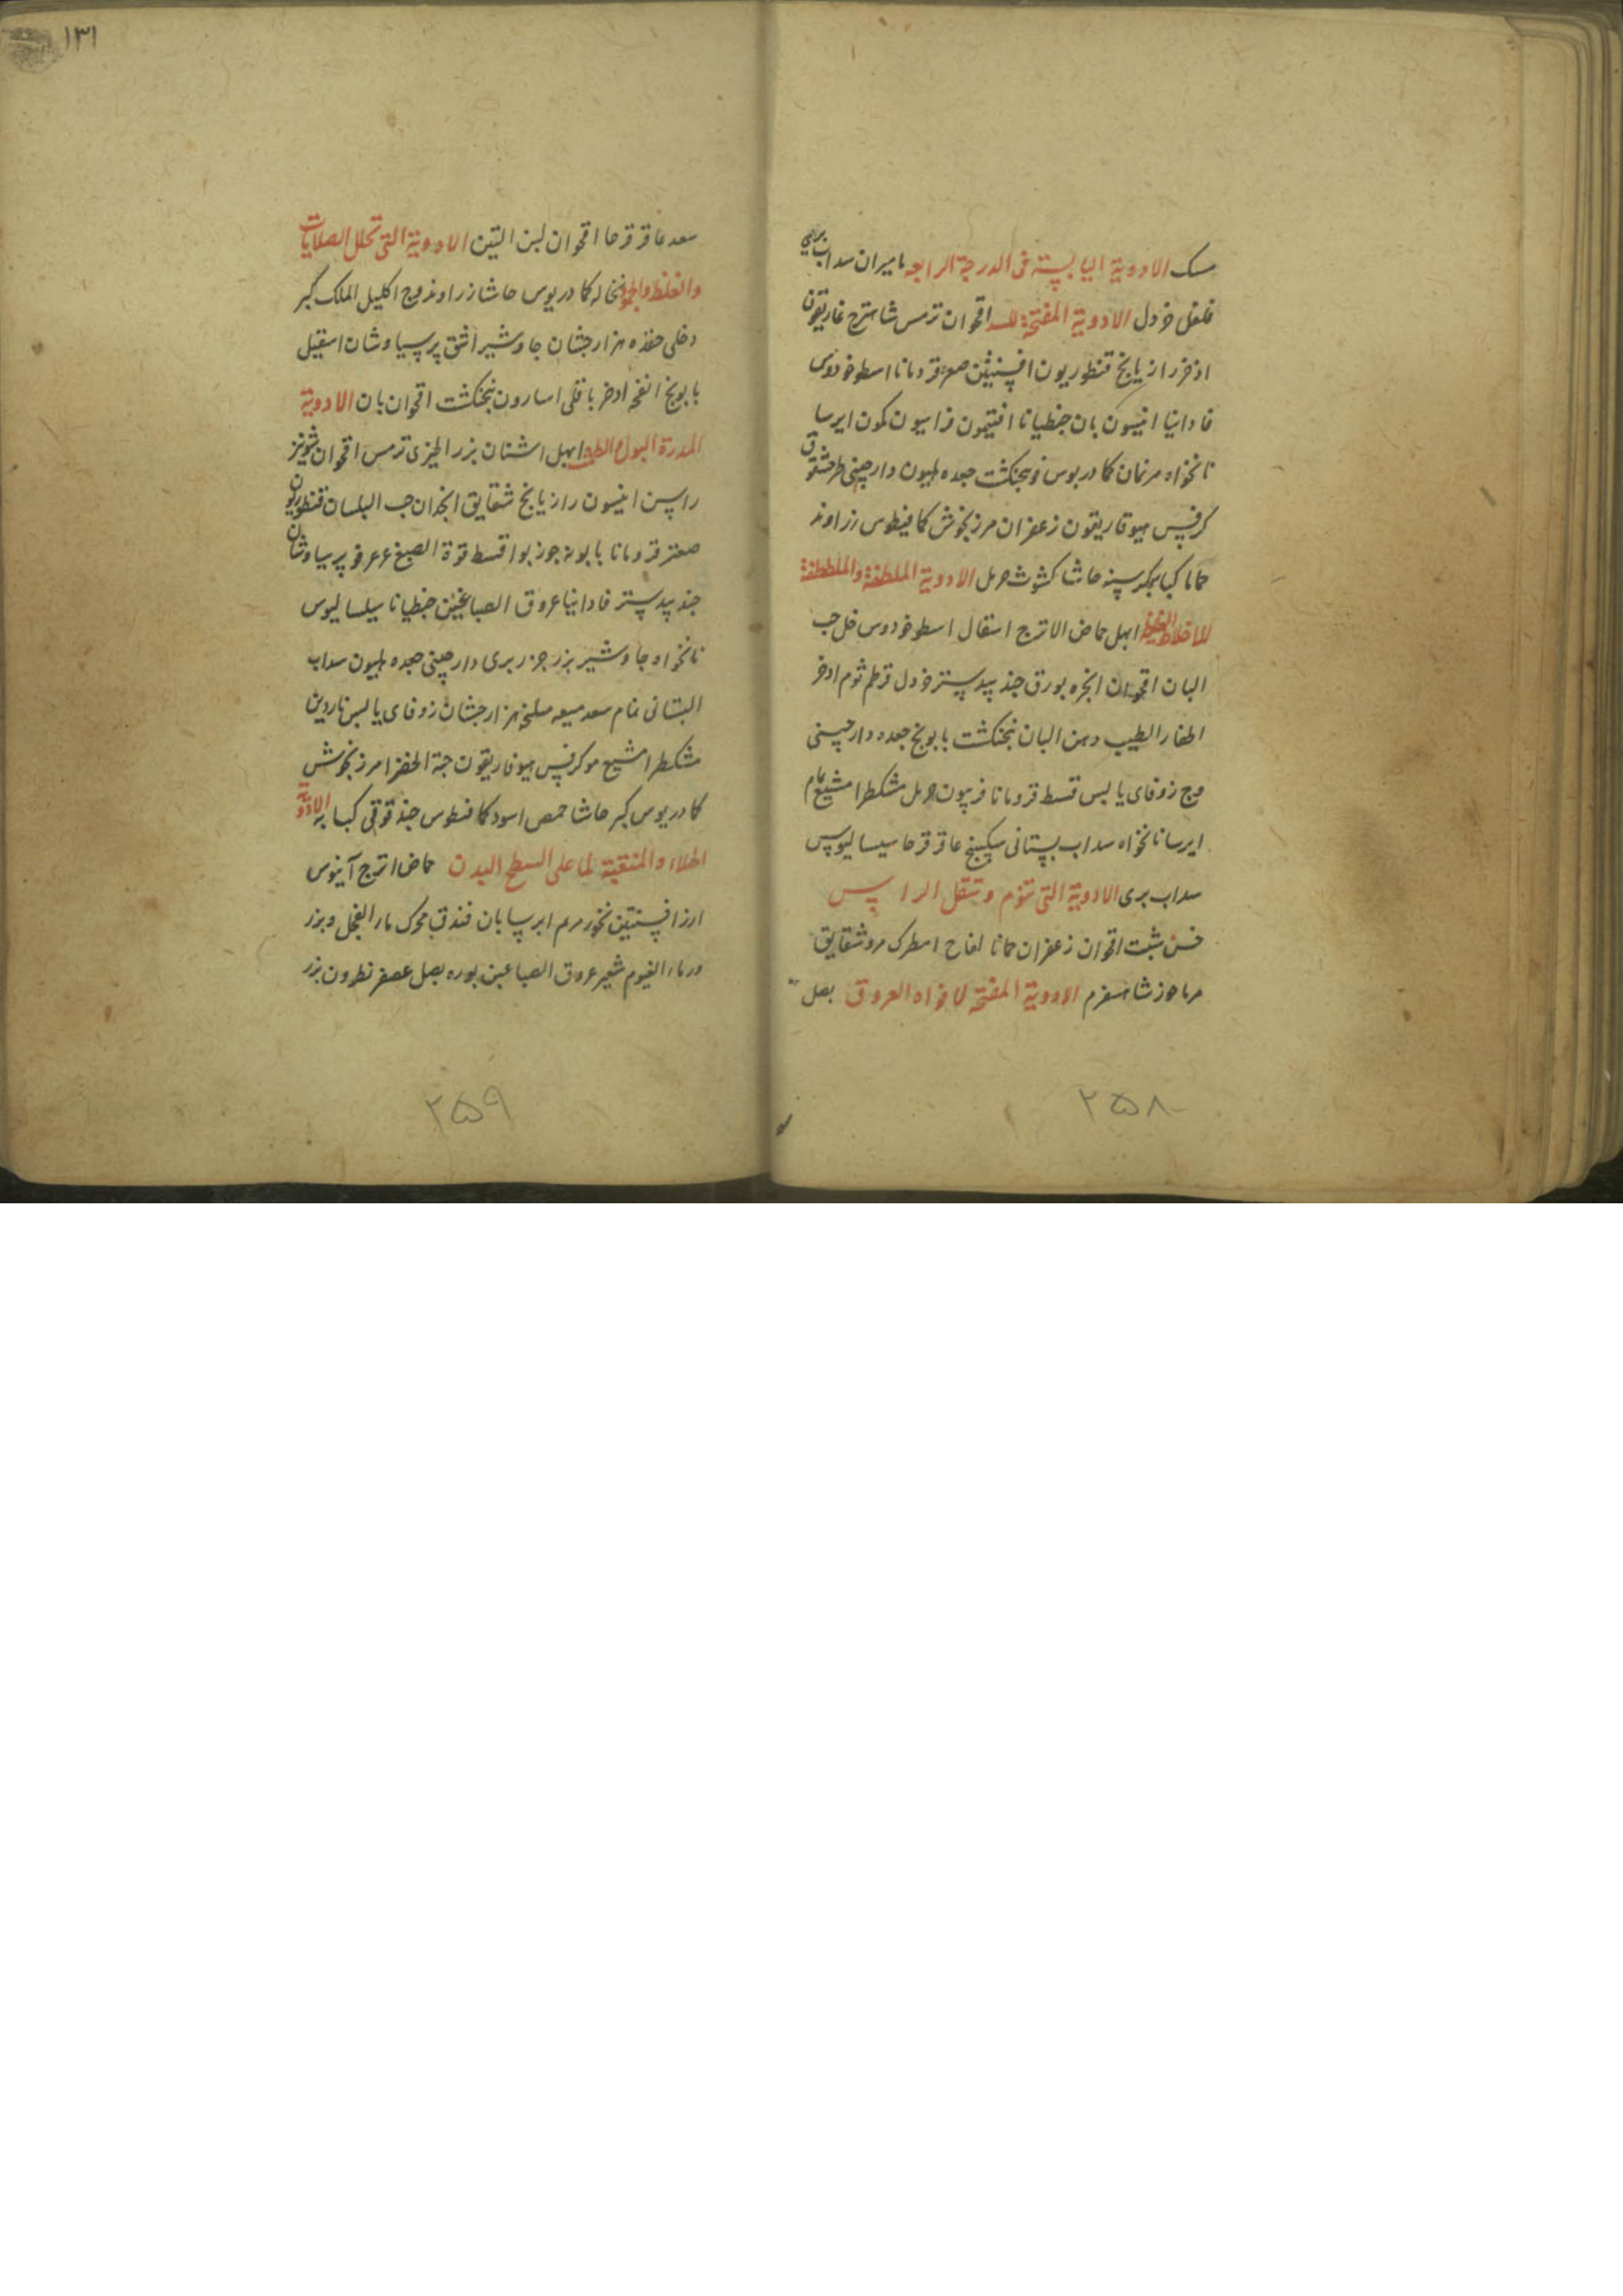 مسک الادویة الیابسة فی الدرجة الرابعه مامیران سداب بری
فلفل خردل الادویة المفتحة للسدد اقحوان ترمس شاهترج غاریقون
اذخر رازیانج قنطوریون افسنتین صعتر قردمانا اسطوخودوس
فادانیا انیسون بان جنطیانا افتیمون فراسیون کمون ایرسا
نانخواه مرنمان کمادریوس فنجنکشت جعده هلیون دارچینی طرخشقوق
کرفس هیوفاریقون زعفران مرزنجوش کمافیطوس زراوند
حماما کبابه کبر سپنه حاشا کشوث حرمل الادویة الملطفة والملطفة
للاخلاط الغلیظ ابهل حماض الاترج اسقال اسطوخودوس خل حب
البان اقحوان انجره بورق جندبیدستر خردل قرطم ثوم ادخر
اظفار الطیب دهن البان بنجنکشت بابونج جعده دارچینی
وج زوفای یابس قسط قردمانا فربیون حرمل مشکطرامشیع نمام
ایرسا نانخواه سداب بستانی سکبینج عاقرقرحا سیسالیوس
سداب بری الادویة التی تنوم و تثقل الراس
خس شبت اقحوان زعفران حمانا لفاح اسطرک مرو شقایق
مرماحوز شاهسفرم الادویة المفتحه لافواه العروق بصل
١٣١
سعد عاقرقرحا اقحوان لبن التین الادویة التی تحلل الصلابات
والغلظ والجمود نخاله کمادریوس حاشا زراوند وج اکلیل الملک کبر
دفلی هزارجشان جاوشیر اشق پرسیاوشان اسقیل
بابونج انفحه ادخر باقلی اسارون بنجنکشت اقحوان بان الادویة
المدرة البول والطمث ابهل اشنان بزر الجزی ترمس اقحوان شونیز
راسن انیسون رازیانج شقایق انجدان حب البلسان قنطوریون
صعتر قردمانا بابونه جوزبوا قسط قوة الصبغ عرعر فو پرسیاوشان
جندبیدستر فادانیا عروق الصباغین جنطیانا سیسالیوس
نانخواه جاوشیر بزر جزر بری دارچینی جعده هلیون سداب
البستانی نمام سعد میعه سلیخه هزارجشان زوفای یابس ناردین
مشکطرامشیع مو کرفس هیوفاریقون حبة الخضرا مرزنجوش
کمادریوس کبر حاشا حمص اسود کمافیطوس حندقوقی کبابه الادویة
الجلاء والمنقیة لما علی السطح البدن حماض اترج آبنوس
ارز افسنتین بخور مریم ایرسا بان فندق محرک ماء الفجل وبزر
ورماء الفیوم شعیر عروق الصباغین بوره بصل عصفر نطرون بزر
٢٥٨
٢٥٩